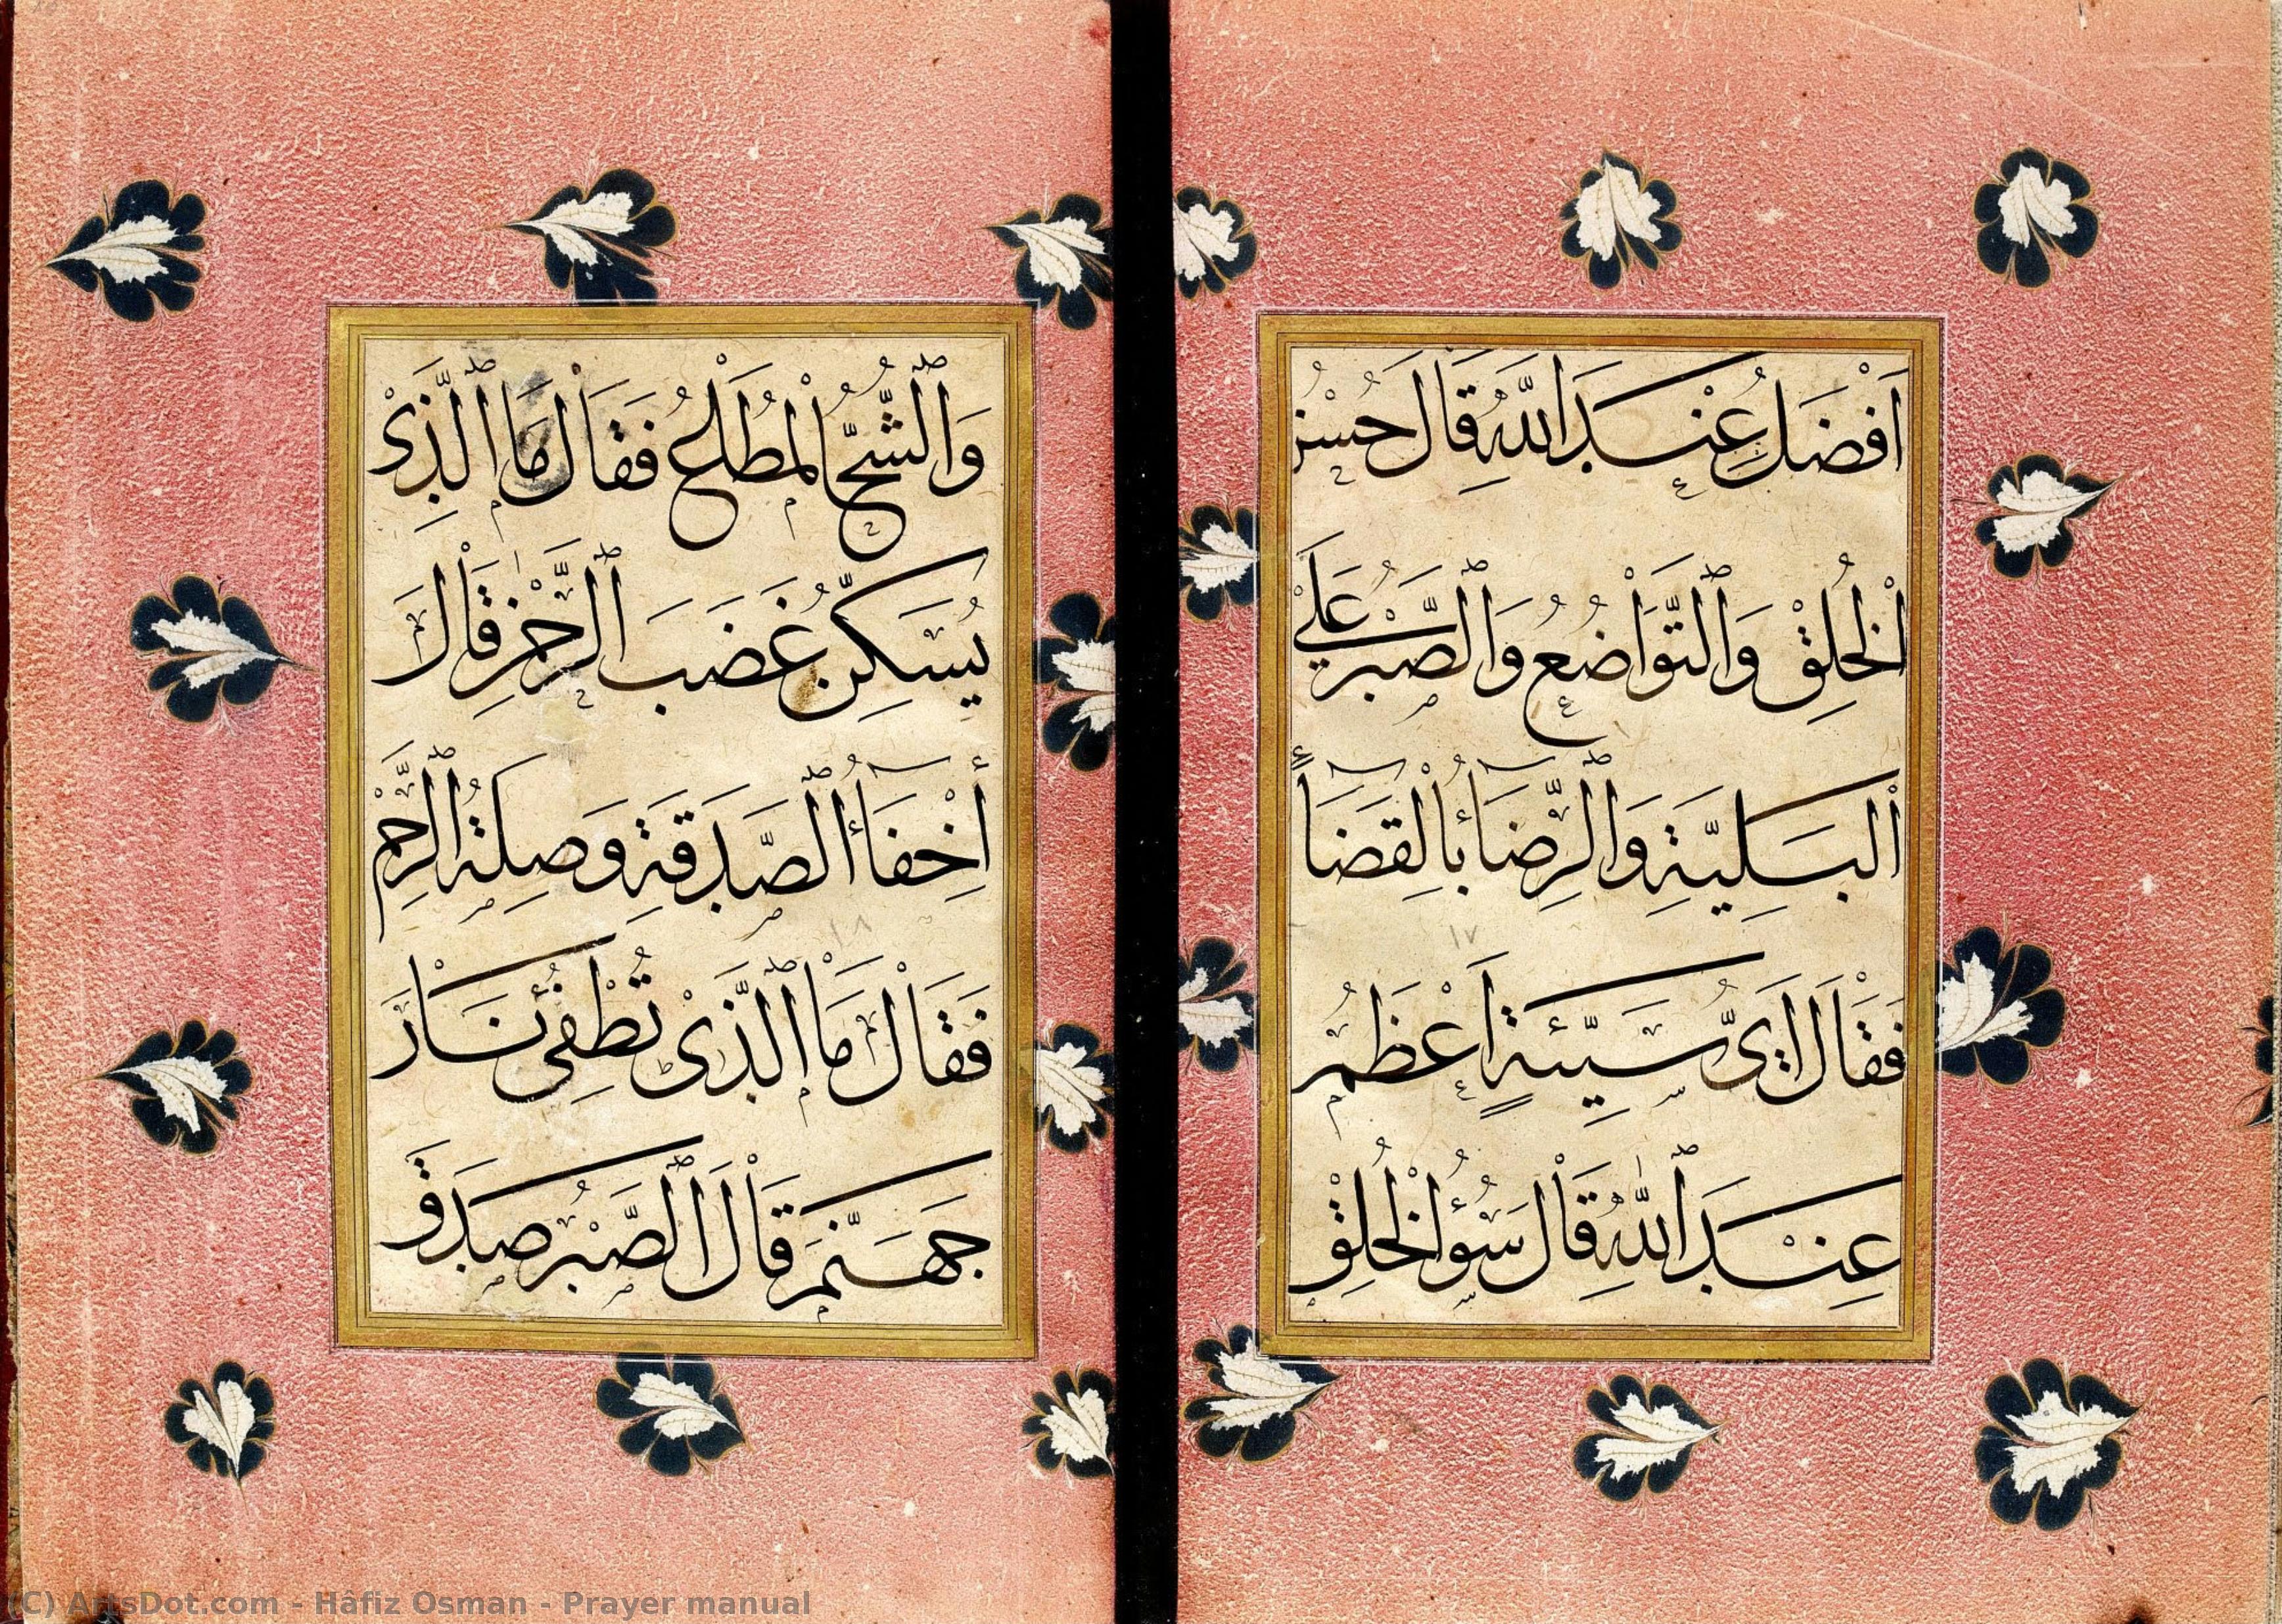 اَفْضَلُ عِنْدَ اللّٰهِ قَالَ حُسْنُ
الْخُلِقْ وَالتَّوَاضُعُ وَالصَّبْرُ عَلَى
الْبَلِيَّةِ وَالرِّضَاءُ بِالْقَضَاءِ
١٧
فَقَالَ اَىُّ سَيِّئَةٍ اَعْظَمُ
عِنْدَ اللّٰهِ قَالَ سُوءُ الْخُلِقْ
وَالشُّحُّ الْمُطْلَعُ فَقَالَ مَا الَّذِىْ
يُسَكِّنُ غَضَبَ الرَّحْمٰنِ قَالَ
أِخْفَاءُ الصَّدَقَةِ وَصِلَةُ الرَّحِمْ
١٨
فَقَالَ مَا الَّذَىْ تُطْفِئُ نَارَ
جَهَنَّمَ قَالَ الصَّبْرُ صَدَقَ
(C) ArtsDot.com - Hâfiz Osman - Prayer manual